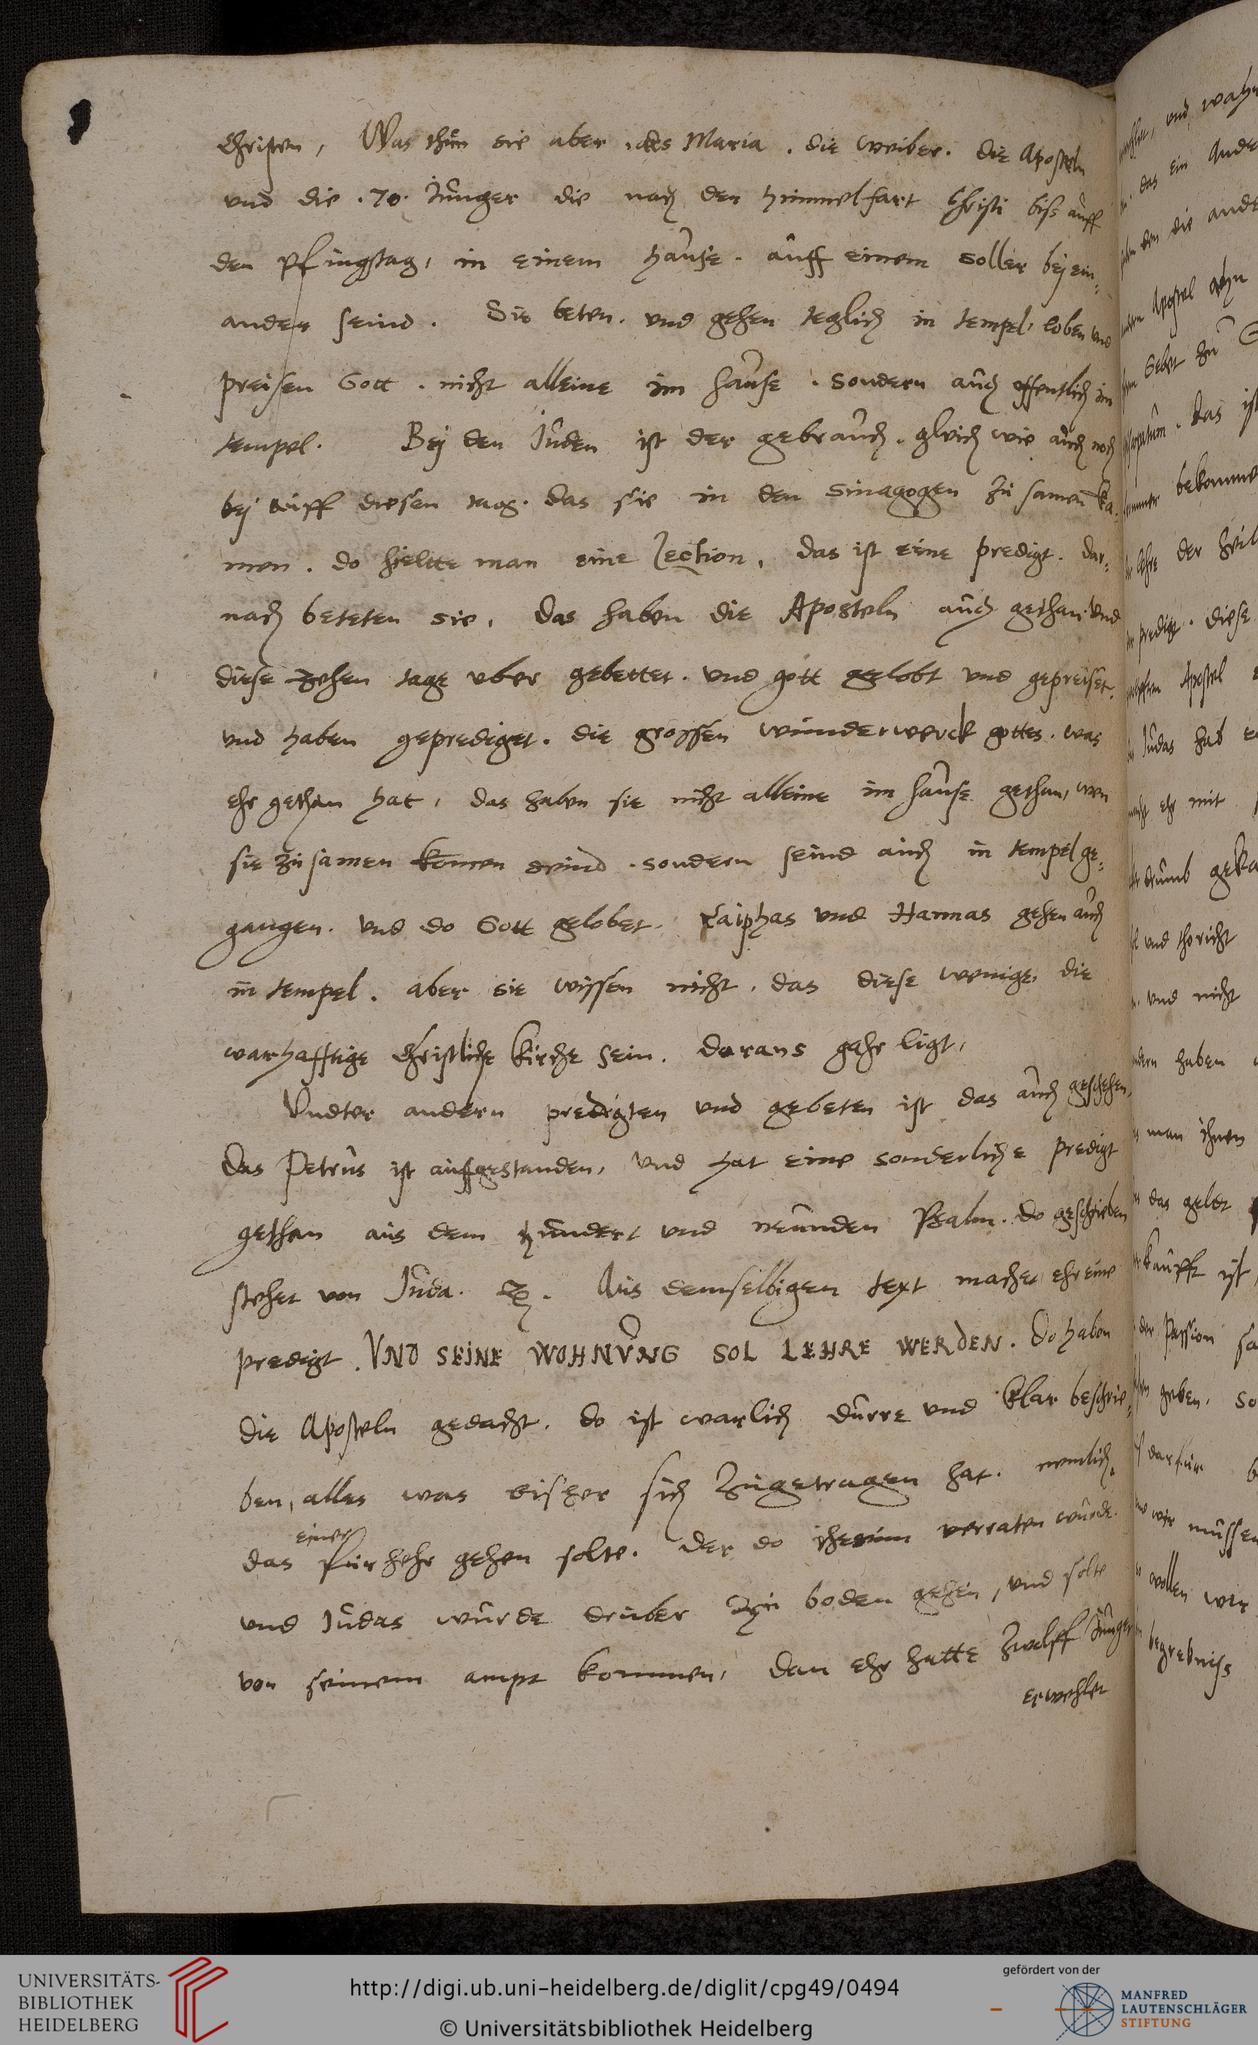 Christen, Was thun sie aber, des Maria. die weiber. die Aposteln
und die .70. Junger die nach der himmelfart Christi biss auff
den pfingstag, in einem hause. auff einem soller bey ein,
ander seind. Sie beten. und gehen teglich in tempel, loben und
preisen Gott. nicht alleine im hause. sondern auch offentlich im
tempel. Bey den Juden ist der gebrauch. gleich wie auch noch
bey auff diesen tag. das sie in den sinagogen zu samen ka,
men. do hieltte man eine Lection, das ist eine predigt. dar,
nach beteten sie, das haben die Aposteln auch gethan. Und
diese zehen tage uber gebettet. und gott gelobt und gepreiset.
und haben geprediget. die grossen wunderwerck gottes. was
ehr gethan hat, das haben sie nicht alleine im hause gethan, wen
sie zusamen komen seind. sondern seind auch in tempel ge,
gangen. und do Gott gelobet. Caiphas und Hannas gehen auch
in tempel. aber sie wissen nicht, das diese wenige, die
warhafftige Christliche kirche sein. daraus gahr ligt,
Undter andern predigten und gebeten ist das auch geschehen,
das Petrus ist auffgestanden, und hat eine sonderliche predigt
gethan aus dem hundert und neunden Psalm. do geschrieben
stehet von Juda. Aus demselbigen text machet ehr eine
predigt. UND SEINE WOHNUNG SOL LEHRE WERDEN. Do haben
die Aposteln gedacht. do ist warlich durre und klar beschrie,
ben, alles was bisher sich zugetragen hat. nemlich,
das einer fur hehr gehen solte. der do ihesum verraten wurde.
und Judas wurde druber zu boden gehen, und solte
von seinem ampt kommen, dan ehr hatte zwelff Junger
erwehlet
UNIVERSITÄTS-
BIBLIOTHEK
HEIDELBERG
http://digi.ub.uni-heidelberg.de/diglit/cpg49/0494
© Universitätsbibliothek Heidelberg
gefördert von der
MANFRED
LAUTENSCHLÄGER
STIFTUNG